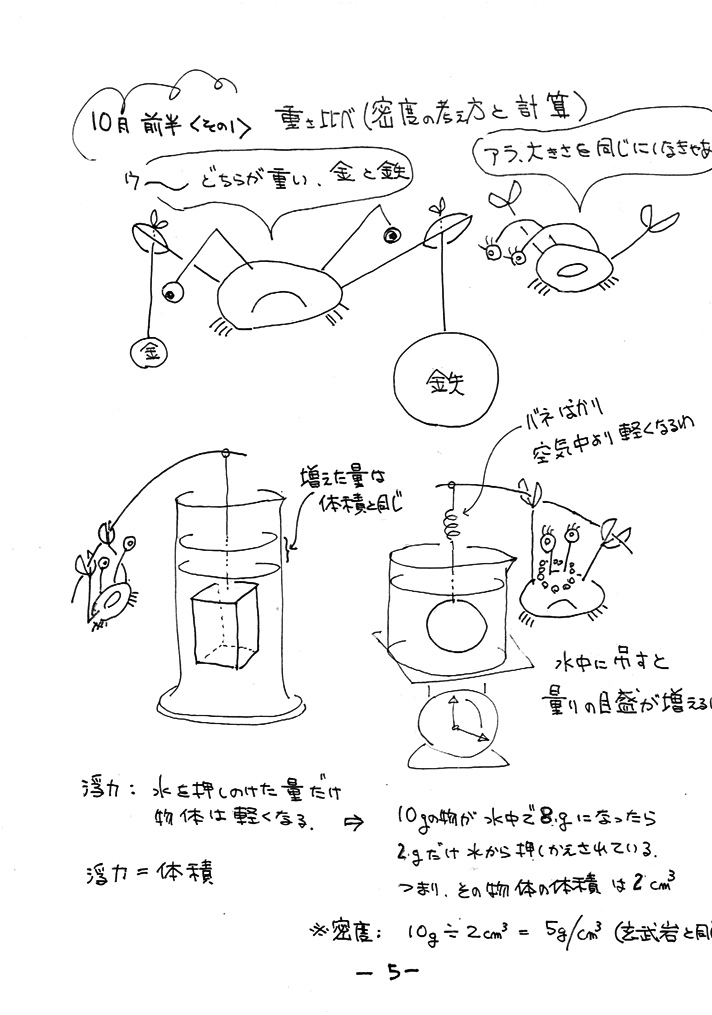 10月 前半〈その1〉 重さ比べ(密度の考え方と計算)
アラ、大きさを同じにしなきゃあ
ウ〜 どちらが重い、金と鉄
金
鉄
バネばかり
空気中より軽くなるわ
増えた量は
体積と同じ
水中に吊すと
量りの目盛が増える
浮力: 水を押しのけた量だけ
物体は軽くなる。
⇨ 10gの物が水中で8.gになったら
2.gだけ水から押しかえされている。
つまり、その物体の体積は2cm³
浮力=体積
※密度: 10g÷2cm³ = 5g/cm³ (玄武岩と同
— 5 —